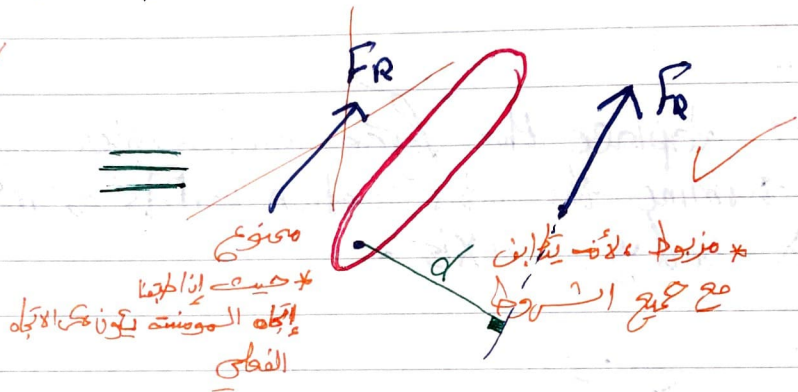 F_R
F_R
ممنوع
* حيث إذا طبقنا
إتجاه المومنت يكون عكس الاتجاه
الفعلي
d
* مزبوط، لأنه يتطابق
مع جميع الشروط